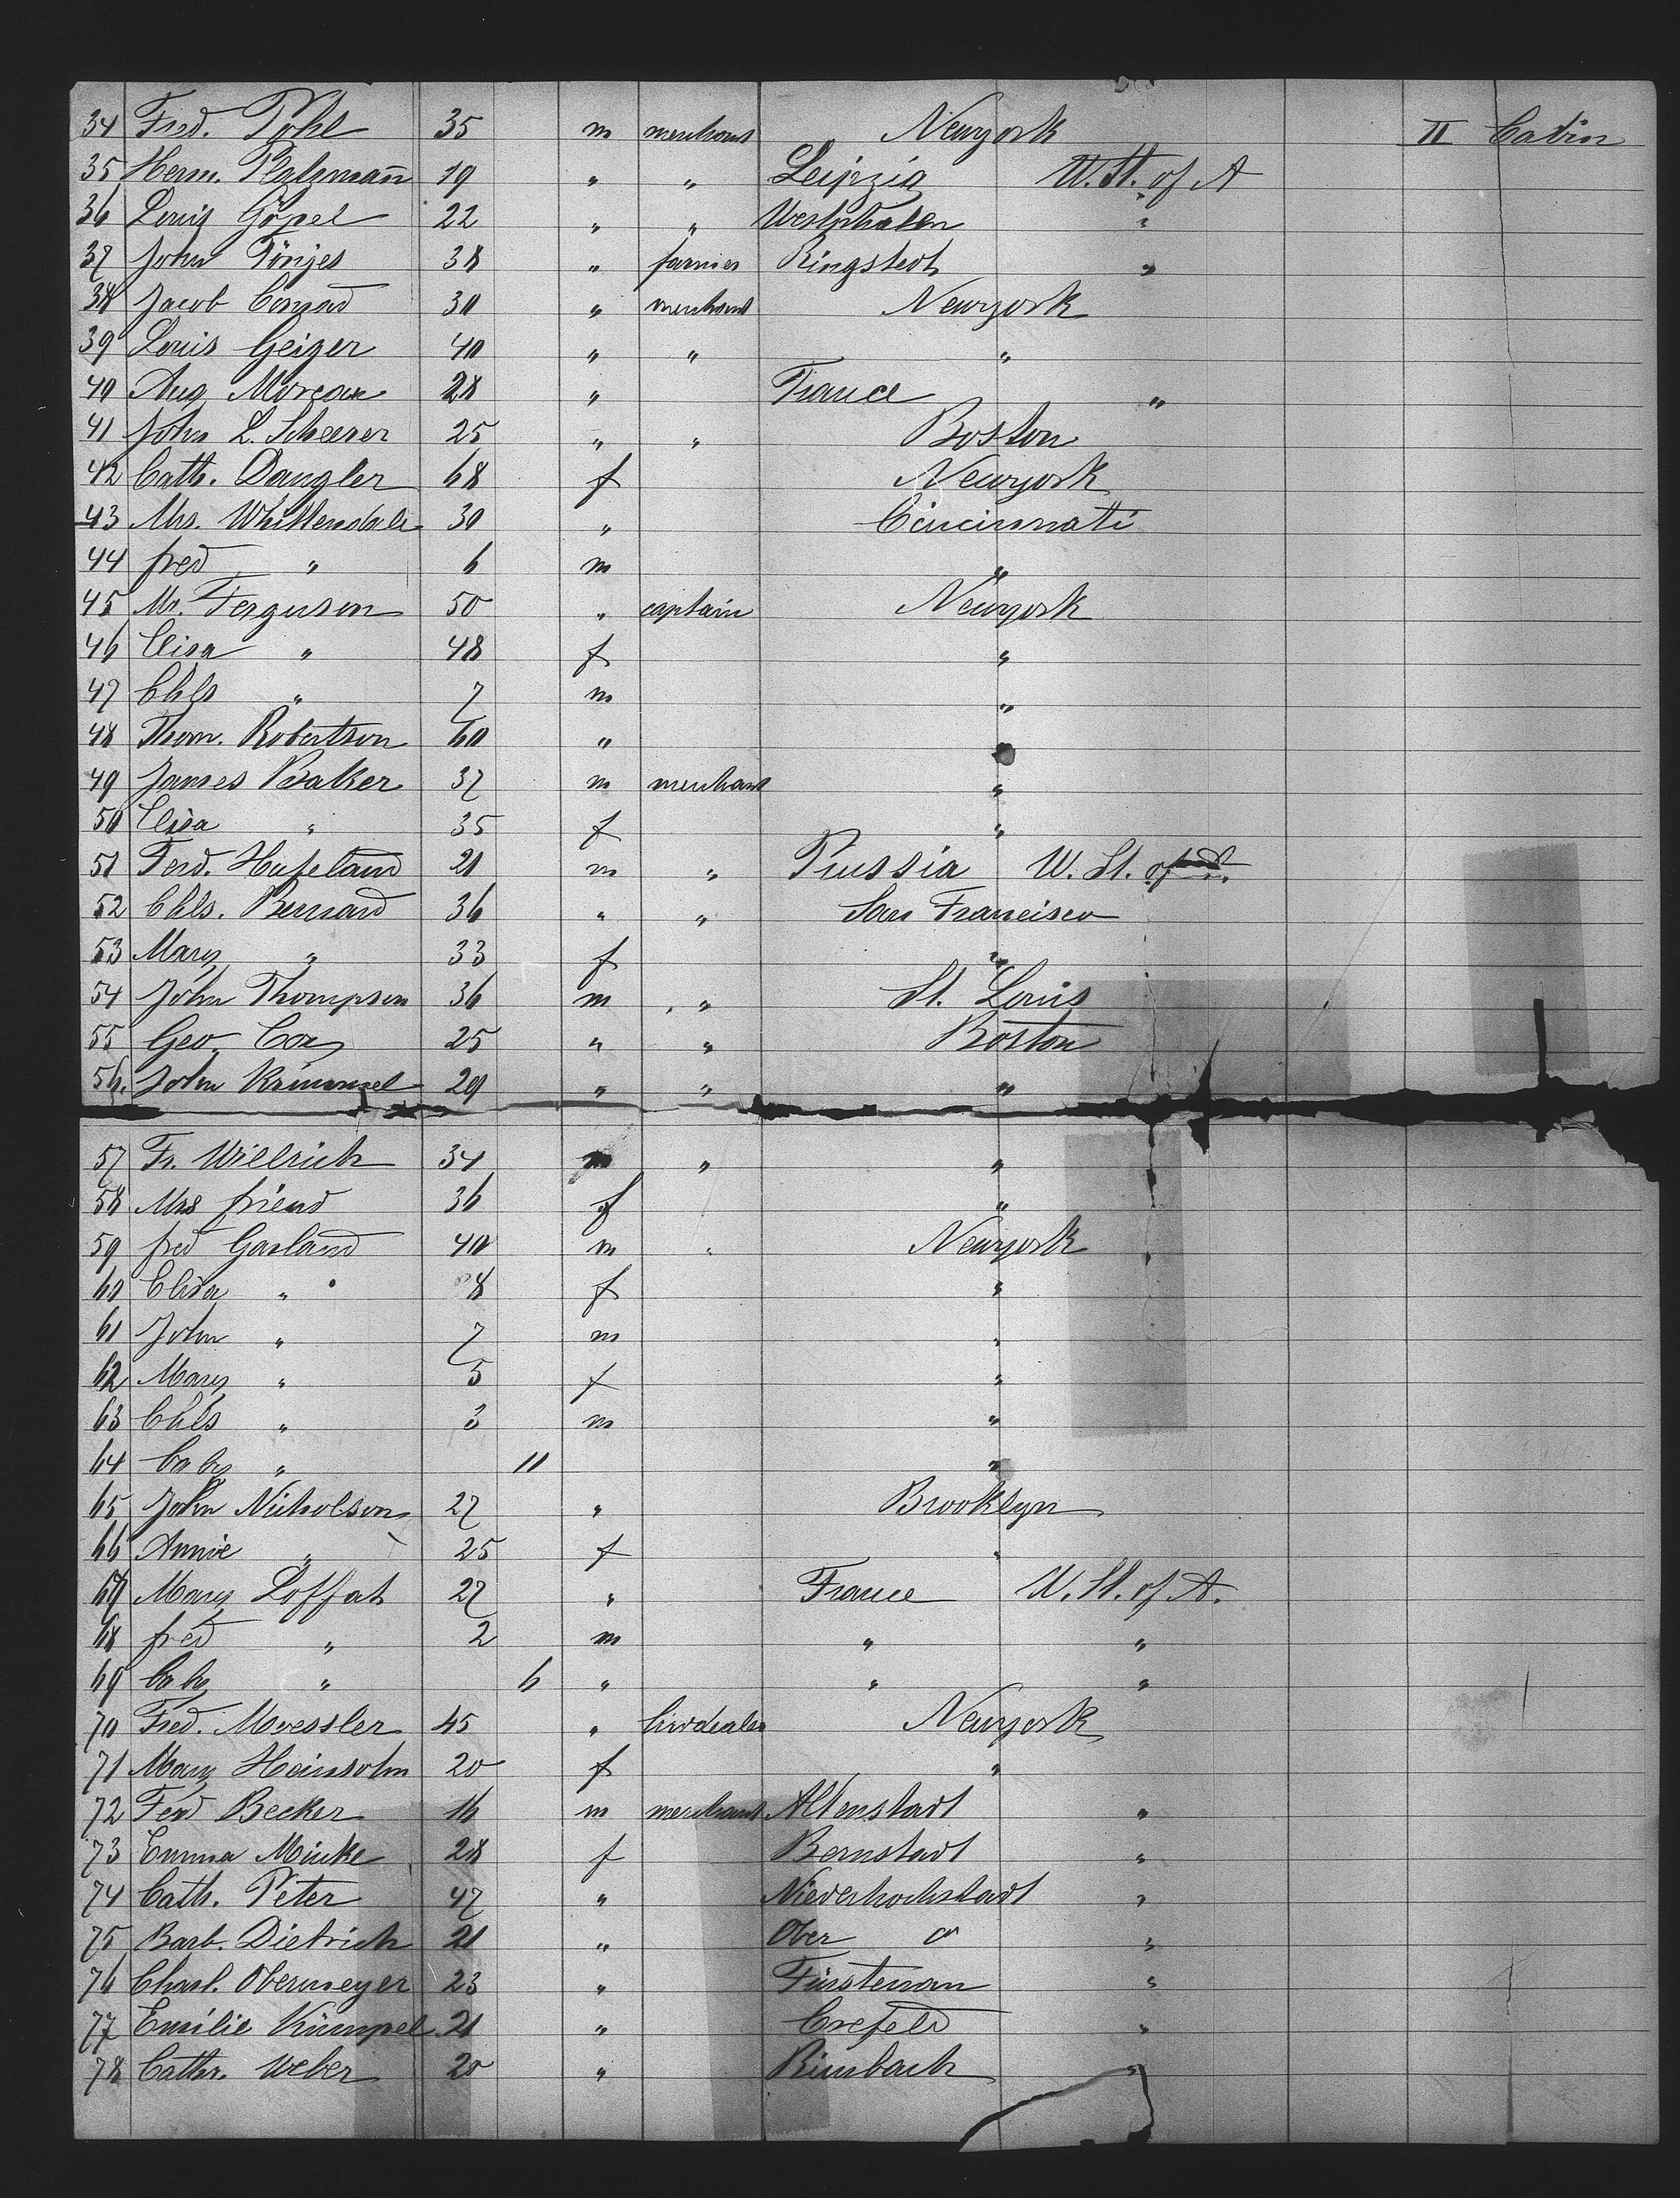 34 Fred. Pohl 35 m merchant Newyork II Cabin
35 Herm. Platzmann 19 " " Leipzig U. St. of A
36 Louis Göpel 22 " " Westphalen "
37 John Tönjes 38 " farmer Ringstedt "
38 Jacob Conrad 30 " merchant Newyork
39 Louis Geiger 40 " " "
40 Aug. Moreau 28 " France "
41 John L. Scheerer 25 " " Boston
42 Cath. Dangler 68 f Newyork
43 Mrs. Whittendale 30 " Cincinnati
44 fred " 6 m "
45 Mr. Ferguson 50 " captain Newyork
46 Elisa " 48 f "
47 Chls " 7 m "
48 Thom. Robertson 60 " "
49 James Baker 37 m merchant "
50 Elisa " 35 f "
51 Ferd. Hufeland 21 m " Prussia U. St. of
52 Chls. Bernard 36 " " San Francisco
53 Mary " 33 f "
54 John Thompson 36 m " St. Louis
55 Geo. Cox 25 " " Boston
56. John Krimmel 29 " " "
57 Fr. Willrich 34 m " "
58 Mrs friend 36 f "
59 fred Garland 40 m " Newyork
60 Elisa " 8 f "
61 John " 7 m "
62 Mary " 5 f "
63 Chls " 3 m "
64 baby " 11 "
65 John Nicholson 27 " Brooklyn
66 Annie " 25 f "
67 Mary Loffat 27 " France U. St. of A.
68 fred " 2 m " "
69 baby " 6 " " "
70 Fred. Moessler 45 " birddealer Newyork
71 Mary Heinsohn 20 f "
72 Ferd Becker 16 m merchant Altenstadt "
73 Emma Minke 28 f Bernstadt "
74 Cath. Peter 47 " Niederhochstadt "
75 Barb. Dietrich 21 " Ober "
76 Charl. Obermeyer 23 " Fürstenau "
77 Emilie Kümpel 21 " Crefeld "
78 Cathr. Weber 20 " Rimbach "